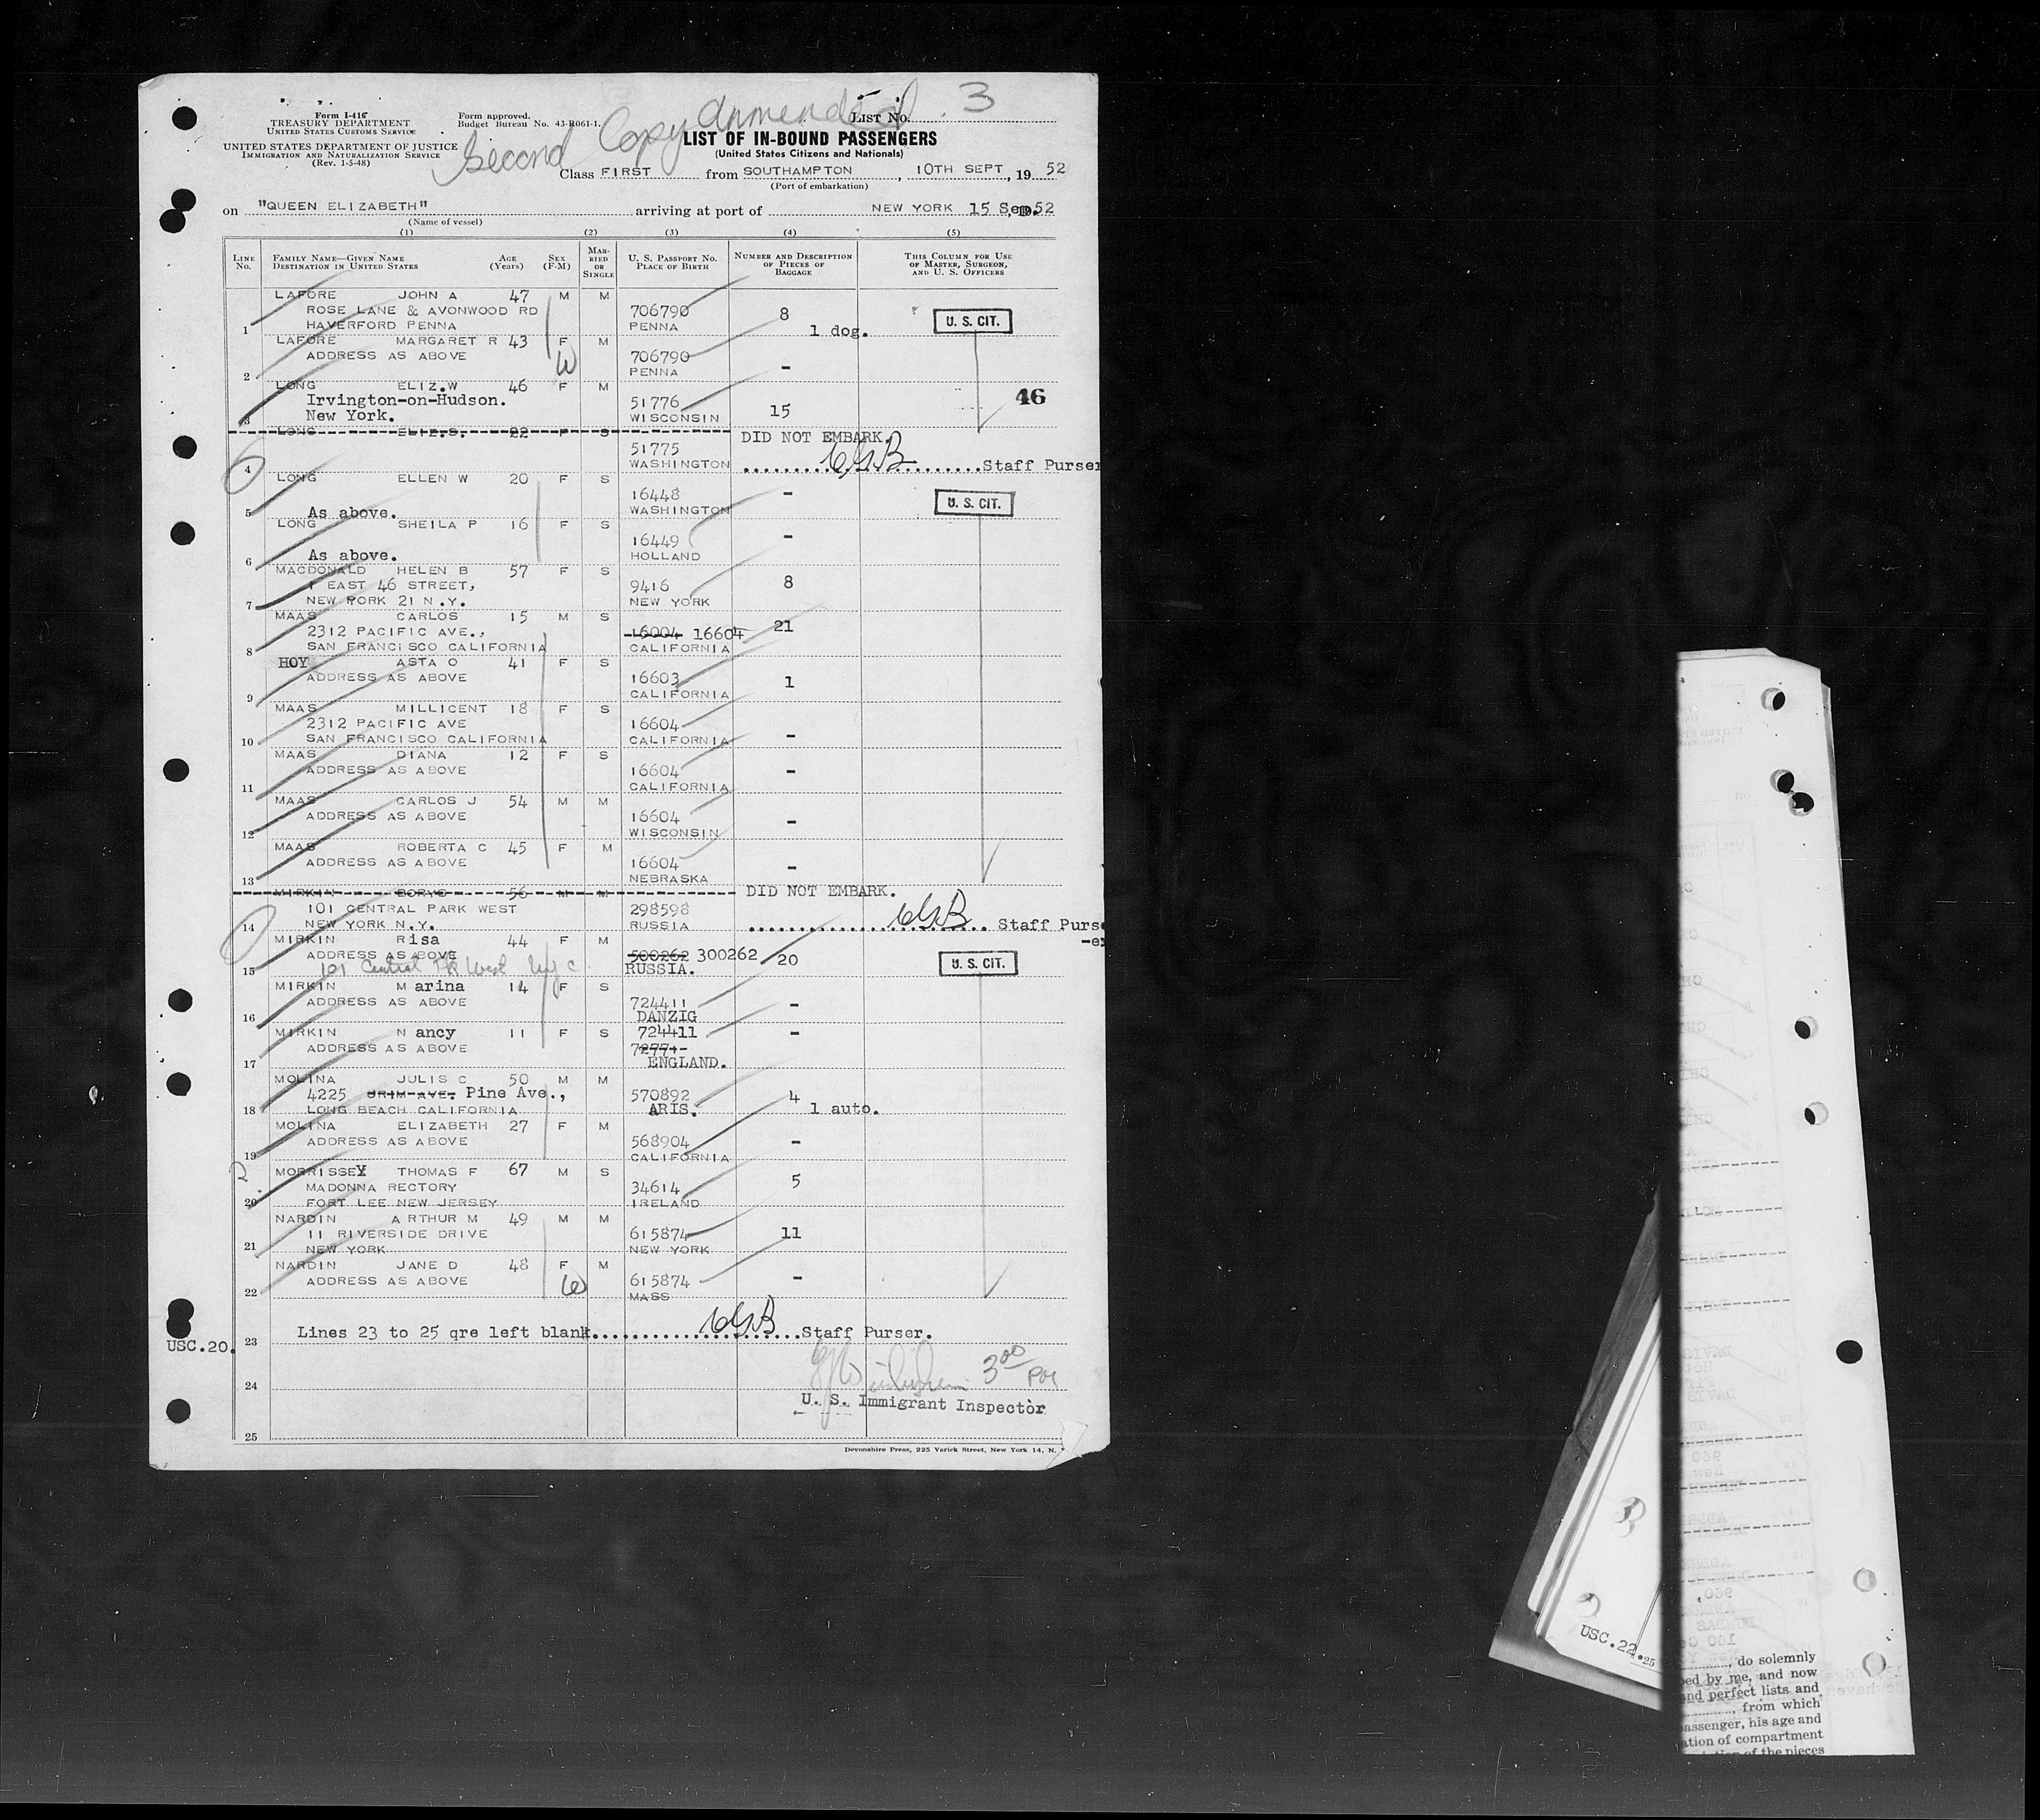 Form I-416
TREASURY DEPARTMENT
UNITED STATES CUSTOMS SERVICE
UNITED STATES DEPARTMENT OF JUSTICE
IMMIGRATION AND NATURALIZATION SERVICE
(Rev. 1-5-48)
Form approved.
Budget Bureau No. 43-R061-1.
Second Copy Anmended
LIST No. 3
LIST OF IN-BOUND PASSENGERS
(United States Citizens and Nationals)
Class FIRST from SOUTHAMPTON, 10TH SEPT, 19 52
(Port of embarkation)
on "QUEEN ELIZABETH" arriving at port of NEW YORK 15 Sep. 52
(Name of vessel)
(1) (2) (3) (4) (5)
LINE No. FAMILY NAME—GIVEN NAME DESTINATION IN UNITED STATES AGE (Years) SEX (F-M) MARRIED OR SINGLE U. S. PASSPORT NO. PLACE OF BIRTH NUMBER AND DESCRIPTION OF PIECES OF BAGGAGE THIS COLUMN FOR USE OF MASTER, SURGEON, AND U. S. OFFICERS
LAFORE JOHN A 47 M M
ROSE LANE & AVONWOOD RD 706790 8 U. S. CIT.
1 HAVERFORD PENNA PENNA 1 dog.
LAFORE MARGARET R 43 F M
ADDRESS AS ABOVE W 706790 -
2 PENNA
LONG ELIZ.W 46 F M
Irvington-on-Hudson. 51776 15 46
3 New York. WISCONSIN
LONG ELIZ.S. 22 F S DID NOT EMBARK.
51775
4 WASHINGTON Staff Purser
LONG ELLEN W 20 F S
16448 - U. S. CIT.
5 As above. WASHINGTON
LONG SHEILA P 16 F S
16449 -
6 As above. HOLLAND
MACDONALD HELEN B 57 F S
1 EAST 46 STREET, 9416 8
7 NEW YORK 21 N.Y. NEW YORK
MAAS CARLOS 15 M S
2312 PACIFIC AVE., 16004 16604 21
8 SAN FRANCISCO CALIFORNIA CALIFORNIA
HOY ASTA O 41 F S
ADDRESS AS ABOVE 16603 1
9 CALIFORNIA
MAAS MILLICENT 18 F S
2312 PACIFIC AVE 16604 -
10 SAN FRANCISCO CALIFORNIA CALIFORNIA
MAAS DIANA 12 F S
ADDRESS AS ABOVE 16604 -
11 CALIFORNIA
MAAS CARLOS J 54 M M
ADDRESS AS ABOVE 16604 -
12 WISCONSIN
MAAS ROBERTA C 45 F M
ADDRESS AS ABOVE 16604 -
13 NEBRASKA
MIRKIN BORYS 56 M M DID NOT EMBARK.
101 CENTRAL PARK WEST 298598
14 NEW YORK N.Y. RUSSIA Staff Purs
MIRKIN Risa 44 F M -er
ADDRESS AS ABOVE 500262 300262 20 U. S. CIT.
15 101 Central Pk West NYC. RUSSIA.
MIRKIN Marina 14 F S
ADDRESS AS ABOVE 724411 -
16 DANZIG
MIRKIN Nancy 11 F S 724411 -
ADDRESS AS ABOVE
17 ENGLAND.
MOLINA JULIS C 50 M M
4225 Pine Ave., 570892 4
18 LONG BEACH CALIFORNIA ARIS. 1 auto.
MOLINA ELIZABETH 27 F M
ADDRESS AS ABOVE 568904 -
19 CALIFORNIA
MORRISSEY THOMAS F 67 M S
MADONNA RECTORY 34614 5
20 FORT LEE NEW JERSEY IRELAND
NARDIN ARTHUR M 49 M M
11 RIVERSIDE DRIVE 615874 11
21 NEW YORK NEW YORK
NARDIN JANE D 48 F M
ADDRESS AS ABOVE W 615874 -
22 MASS
Lines 23 to 25 qre left blank. Staff Purser.
USC.20. 23
3 00 
24
U. S. Immigrant Inspector
25
Devonshire Press, 225 Varick Street, New York 14, N.
USC.22.
25
, do solemnly
by me, and now
nd perfect lists and
, from which
assenger, his age and
ation of compartment
of the pieces